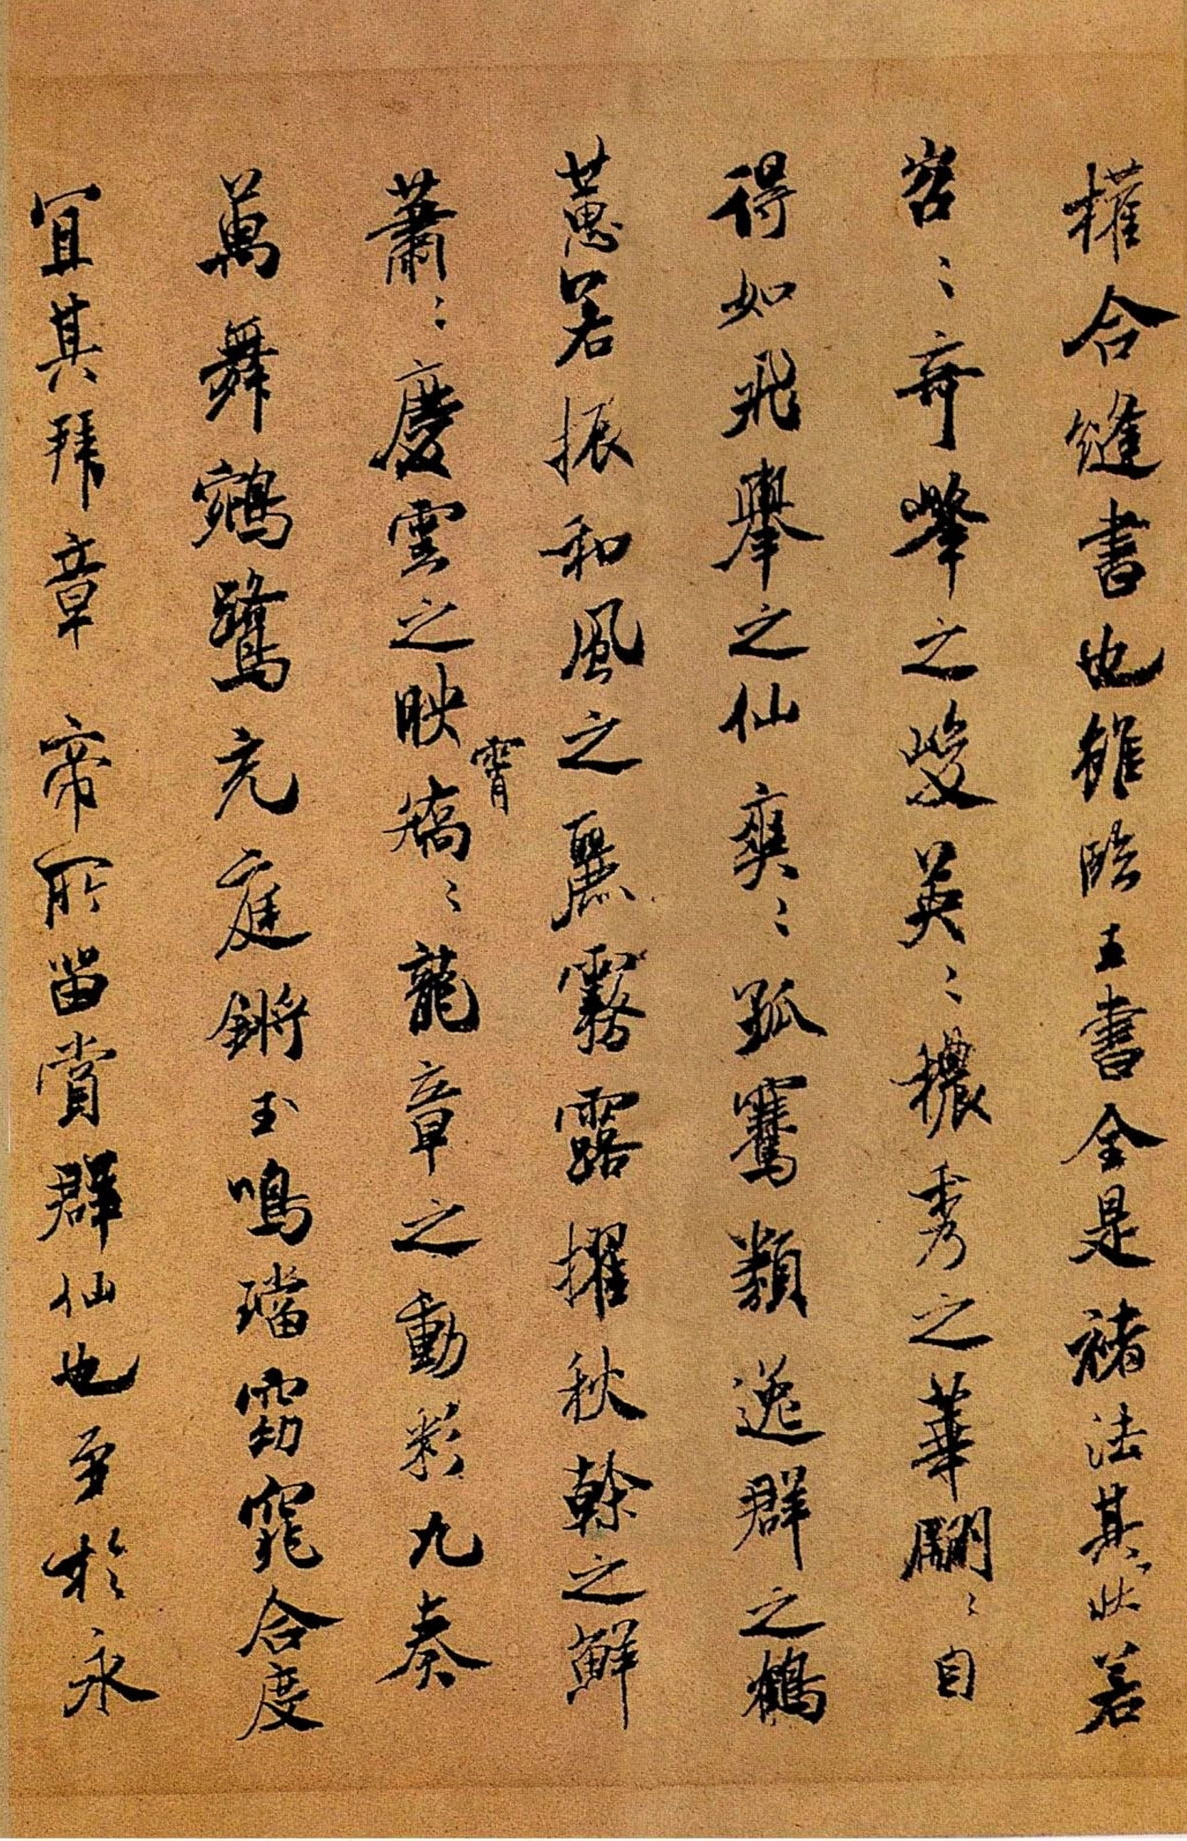 權合縫書也雖臨王書全是褚法其狀若
岩〻奇峰之峻英〻穠秀之華翩〻自
得如飛舉之仙爽〻孤騫類逸群之鶴
蕙若振和風之麗霧露擢秋幹之鮮
蕭〻慶雲之映霄矯〻龍章之動彩九奏
萬舞鵷鷺充庭鏘玉鳴璫窈窕合度
宜其拜章帝所留賞群仙也至於永